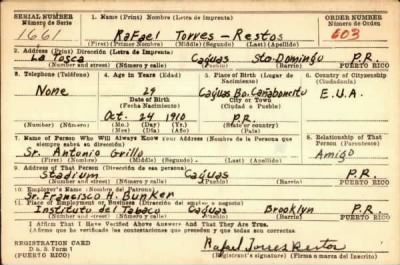 SERIAL NUMBER 1. Name (Print) Nombre (Letra de Imprenta) ORDER NUMBER
Número de Serie Número de Orden
1661 Rafael Torres-Restos 603
(First) (Primer Nombre) (Middle) (Segundo) (Last) (Apellido)
2. Address (Print) Dirección (Letra de Imprenta)
La Tosca Caguas Sto. Domingo P.R.
(Number and street) (Número y calle) (Barrio) PUERTO RICO
3. Telephone (Teléfono) 4. Age in Years (Edad) 5. Place of Birth (Lugar de Nacimiento) 6. Country of Citizenship (Ciudadanía)
None 29 Caguas Bo. Cañaboncito E.U.A.
Date of Birth City or Town
(Fecha Nacimiento) (Ciudad o Pueblo)
Oct. 24 1910 P.R.
(Mo.) (Day) (Yr.) State or country)
(Mes) (Día) (Año) (Estado o país)
7. Name of Person Who Will Always Know Your Address (Nombre de la Persona que siempre sabrá su dirección) 8. Relationship of That Person (Parentesco)
Sr. Antonio Grillo Amigo
9. Address of That Person (Dirección de esa persona)
Stadium Caguas P.R.
(Number and street) (Número y calle) (Barrio) PUERTO RICO
10. Employer's Name (Nombre del Patrono)
Sr. Francisco H. Bunker
11. Place of Employment or Business (Dirección del empleo o negocio)
Instituto del Tabaco Caguas Brooklyn P.R.
(Number and street) (Número y calle) (Barrio) PUERTO RICO
I Affirm That I Have Verified Above Answers And That They Are True.
(Afirmo que he verificado las contestaciones que preceden y que todas son correctas.
REGISTRATION CARD
D. S. S. Form 1
(PUERTO RICO)
Rafael Torres Restos
(Registrant's signature) (Firma o marca del inscrito)